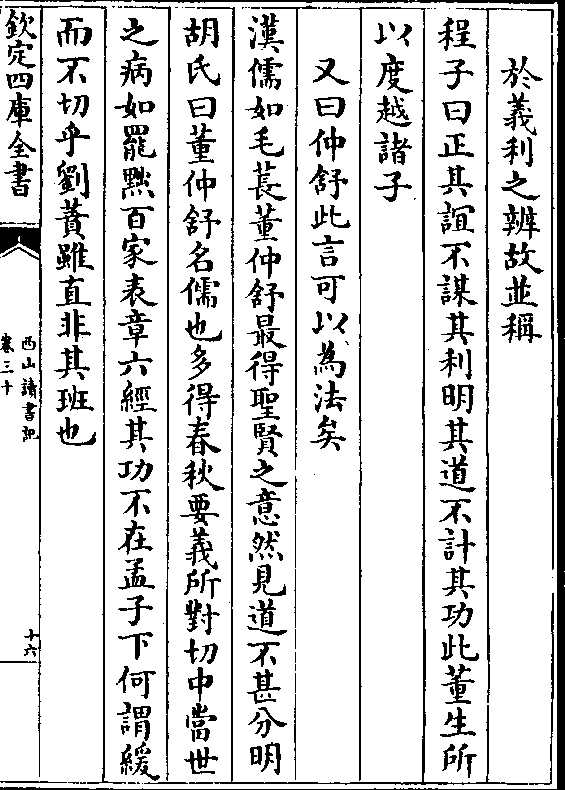 於義利之辨故並稱
程子曰正其誼不謀其利明其道不計其功此董生所
以度越諸子
又曰仲舒此言可以為法矣
漢儒如毛萇董仲舒最得聖賢之意然見道不甚分明
胡氏曰董仲舒名儒也多得春秋要義所對切中當世
之病如罷黜百家表章六經其功不在孟子下何謂緩
而不切乎劉蕡雖直非其班也
欽定四庫全書
西山讀書記
卷三十
十六